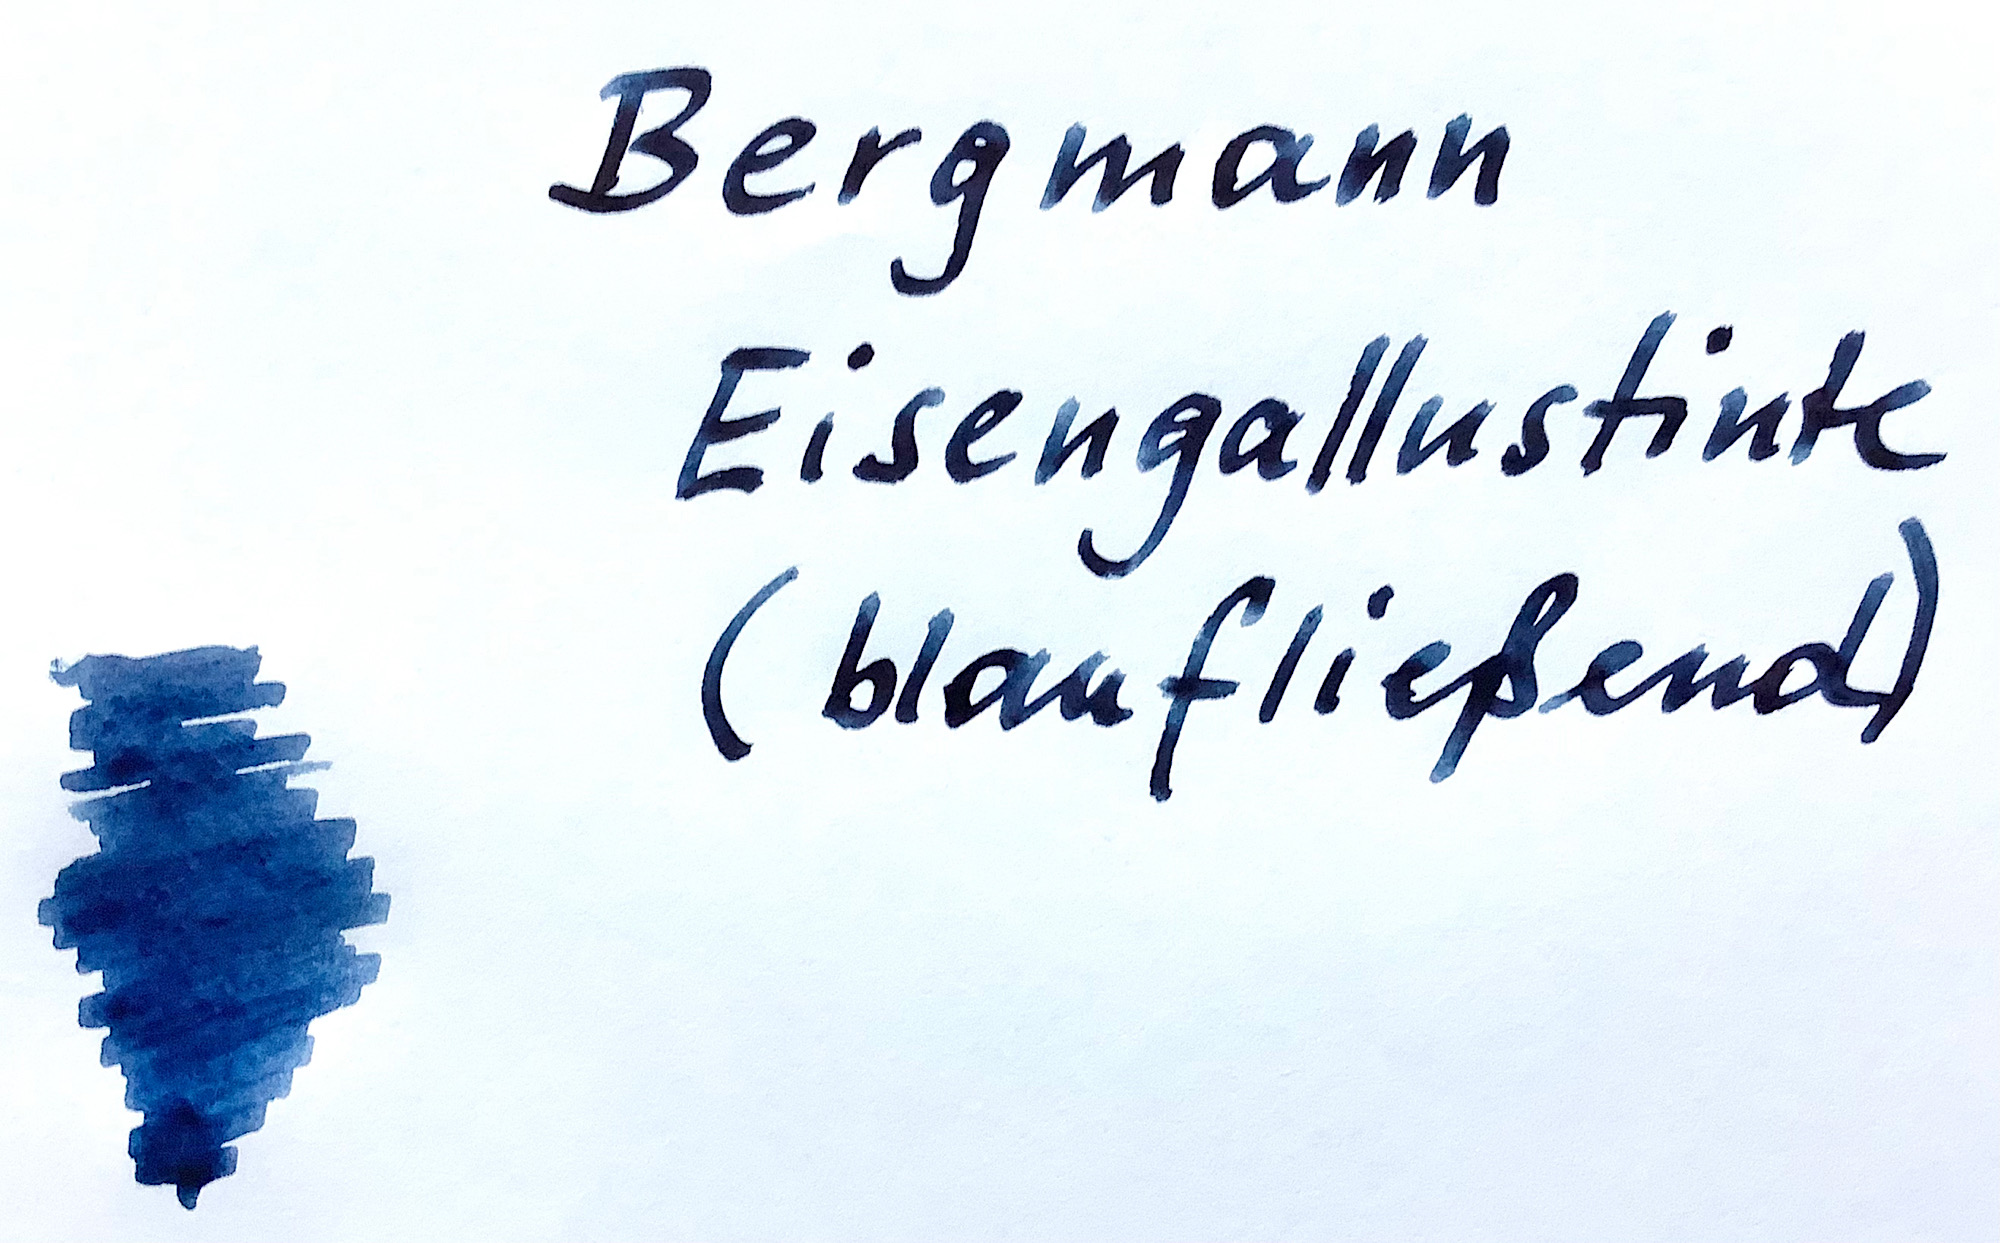 Bergmann
Eisengallustinte
(blaufließend)